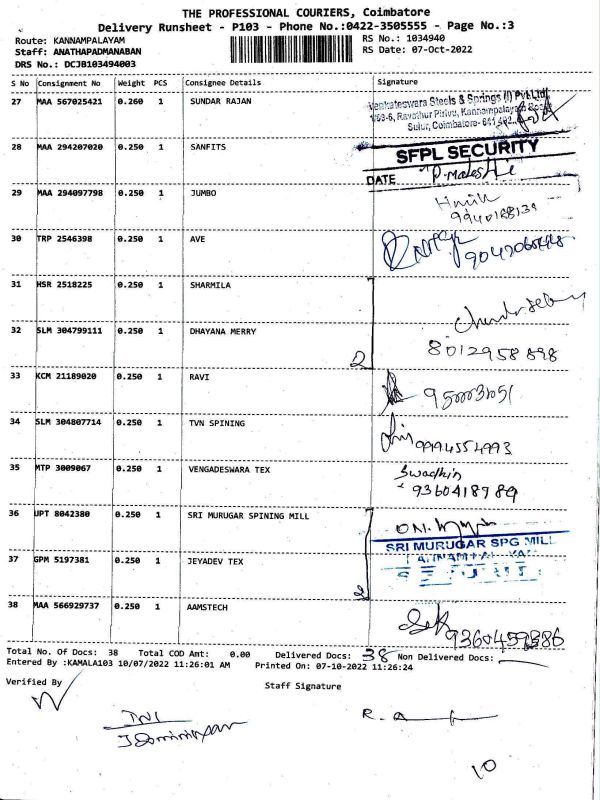 THE PROFESSIONAL COURIERS, Coimbatore
Delivery Runsheet - P103 - Phone No.:0422-3505555 - Page No.:3
Route: KANNAMPALAYAM RS No.: 1034940
Staff: ANATHAPADMANABAN RS Date: 07-Oct-2022
DRS No.: DCJB103494003
S No Consignment No Weight PCS Consignee Details Signature
27 MAA 567025421 0.260 1 SUNDAR RAJAN
Venkateswara Steels & Springs (I) Pvt Ltd
Sulur, Coimbatore-
28 MAA 294207020 0.250 1 SANFITS
SFPL SECURITY
DATE
29 MAA 294097798 0.250 1 JUMBO
30 TRP 2546398 0.250 1 AVE
31 HSR 2518225 0.250 1 SHARMILA
32 SLM 304799111 0.250 1 DHAYANA MERRY
2 8012958898
33 KCM 21189020 0.250 1 RAVI
34 SLM 304807714 0.250 1 TVN SPINING
9994554993
35 MTP 3009067 0.250 1 VENGADESWARA TEX
9360418989
36 UPT 8042380 0.250 1 SRI MURUGAR SPINING MILL
SRI MURUGAR SPG MILL
37 GPM 5197381 0.250 1 JEYADEV TEX
2
38 MAA 566929737 0.250 1 AAMSTECH
9360459386
Total No. Of Docs: 38 Total COD Amt: 0.00 Delivered Docs: 38 Non Delivered Docs:
Entered By :KAMALA103 10/07/2022 11:26:01 AM Printed On: 07-10-2022 11:26:24
Verified By Staff Signature
10